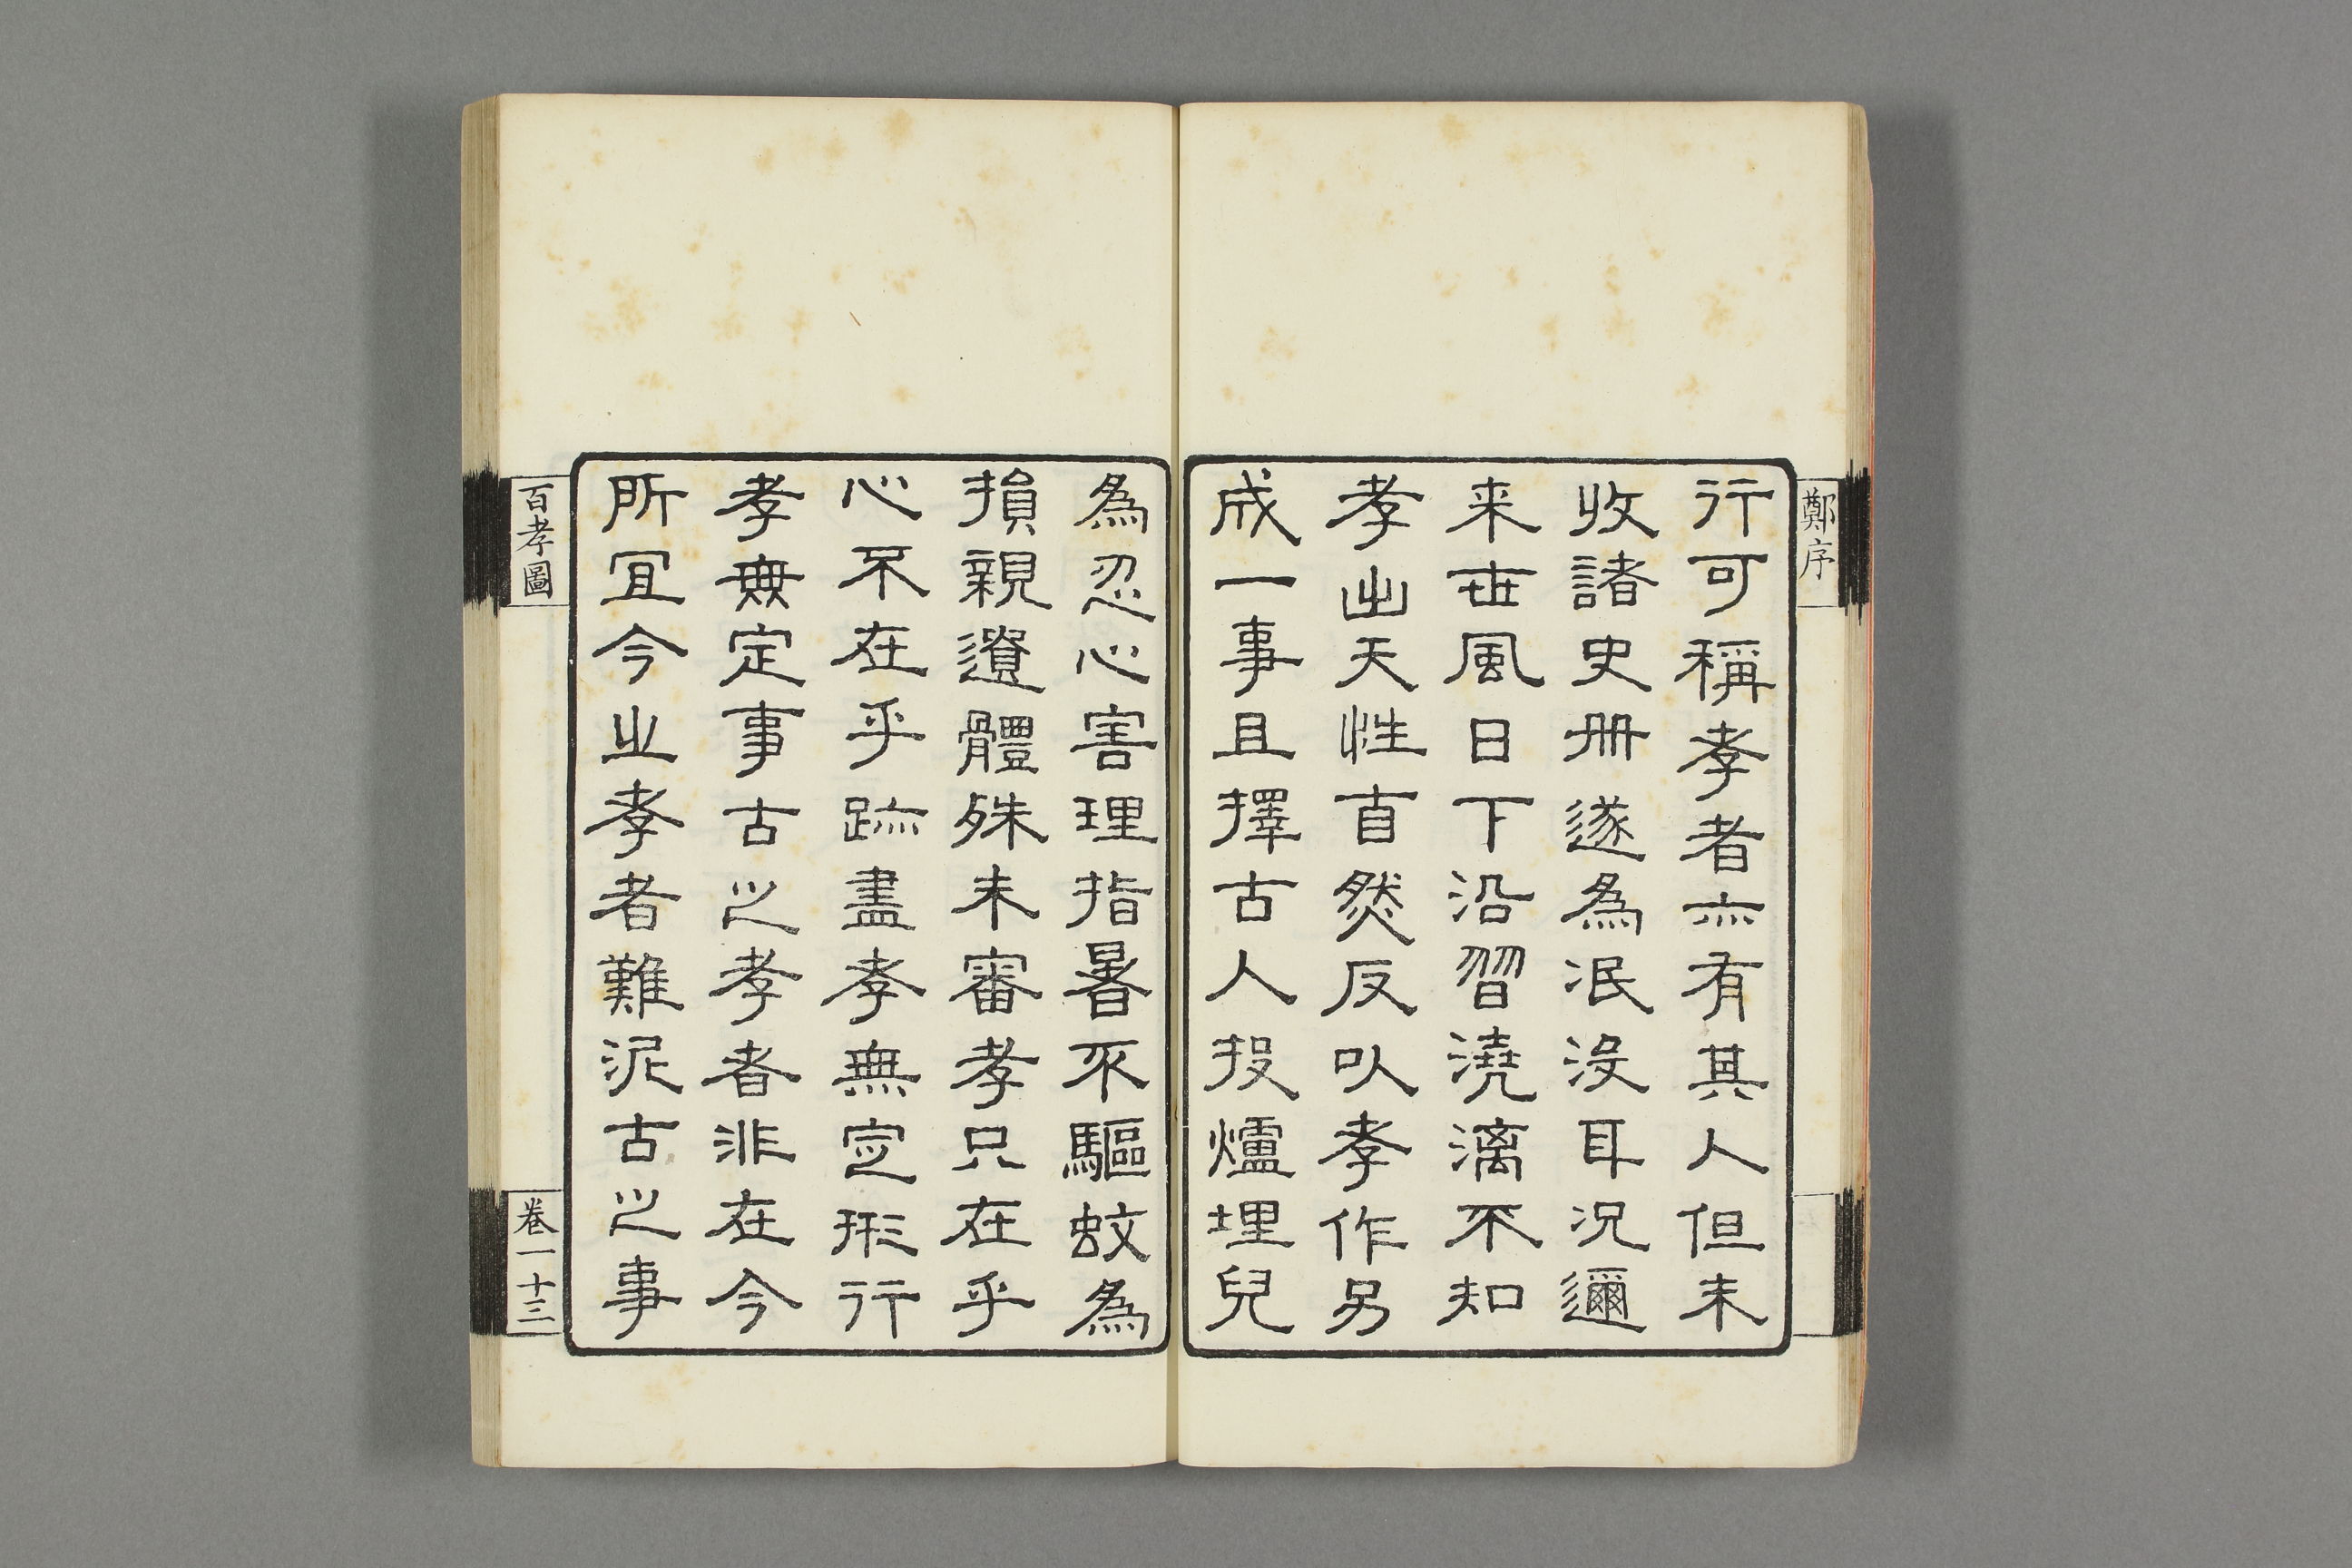 鄭序
行可稱孝者亦有其人但未
收諸史冊遂為泯沒耳況邇
来世風日下沿習澆漓不知
孝出天性自然反以孝作另
成一事且擇古人投爐埋兒
為忍心害理指暑不驅蚊為
損親遺體殊未審孝只在乎
心不在乎跡盡孝無定形行
孝無定事古之孝者非在今
所宜今之孝者難泥古之事
百孝圖
卷一
十三